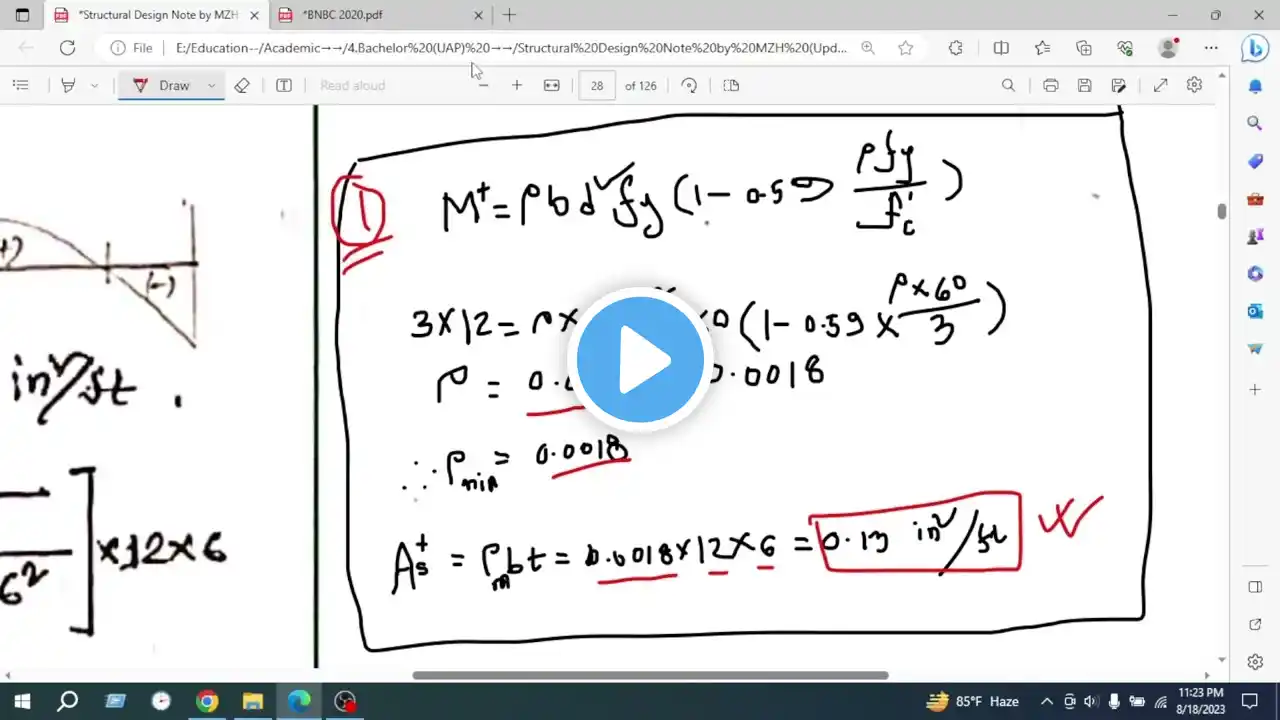 *Structural Design Note by MZH
*BNBC 2020.pdf
File E:/Education--/Academic→→/4.Bachelor%20(UAP)%20→→/Structural%20Design%20Note%20by%20MZH%20(Upd...
Draw
Read aloud
28 of 126
1
M⁺ = ρbd²fy (1 - 0.59 ρfy/f'c)
(+)
(-)
3×12 = ρ× ×0 (1 - 0.59 × ρ×60/3)
in²/ft .
ρ = 0.0 0.0018
∴ ρmin = 0.0018
6² ] ×12×6
As⁺ = ρm bt = 0.0018×12×6 = 0.13 in²/ft
85°F Haze
11:23 PM
8/18/2023